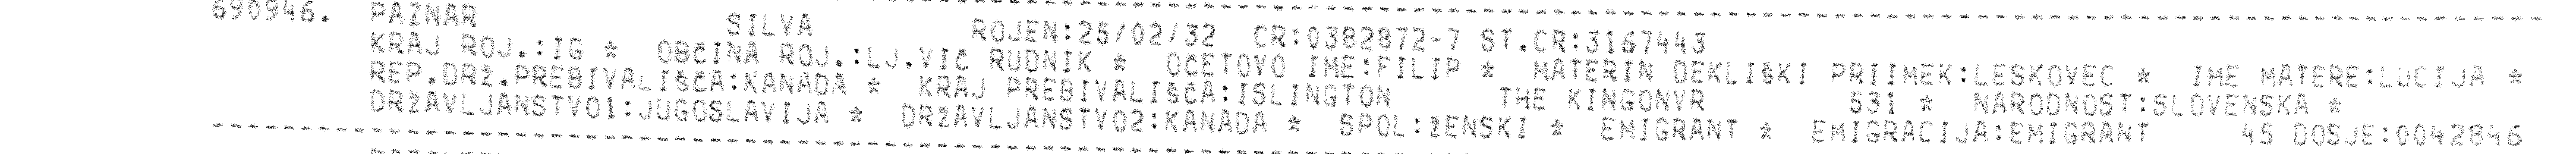 690946. PAZNAR SILVA ROJEN:25/02/32 CR:0382872-7 ST.CR:3167443
KRAJ ROJ.:IG * OBČINA ROJ.:LJ.VIČ RUDNIK * OČETOVO IME:FILIP * MATERIN DEKLIŠKI PRIIMEK:LESKOVEC * IME MATERE:LUCIJA *
REP.DRŽ.PREBIVALIŠČA:KANADA * KRAJ PREBIVALIŠČA:ISLINGTON THE KINGONVR 531 * NARODNOST:SLOVENSKA *
DRŽAVLJANSTVO1:JUGOSLAVIJA * DRŽAVLJANSTVO2:KANADA * SPOL:ŽENSKI * EMIGRANT * EMIGRACIJA:EMIGRANT 45 DOSJE:0042846